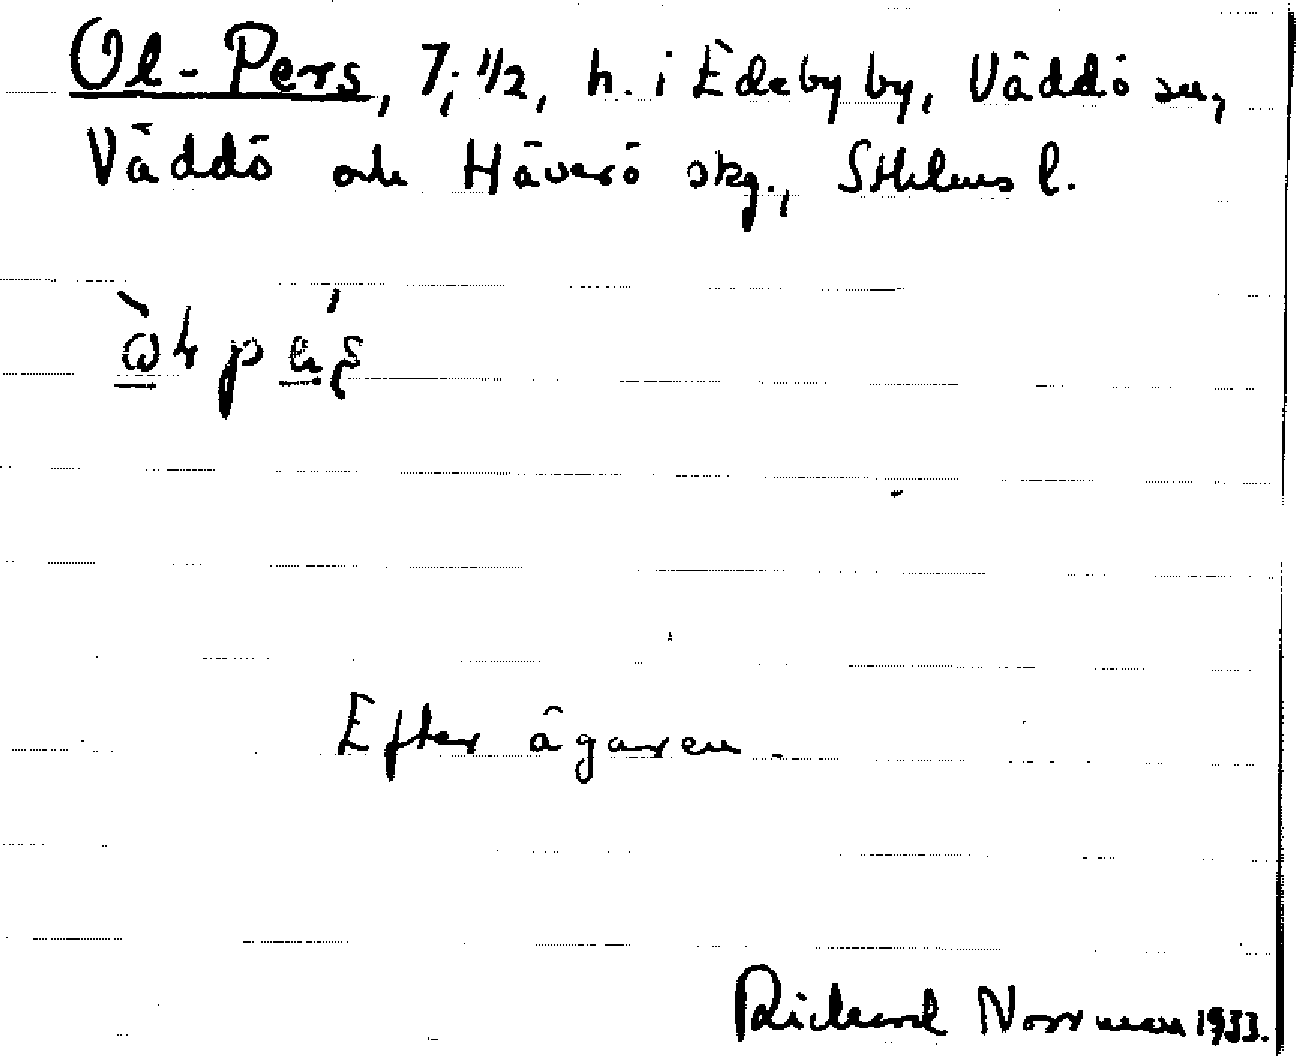 Ol-Pers, 7; 1/2, h. i Edeby by, Väddö sn,
Väddö och Häverö skg., Sthlms l.
Efter ägaren.
Rickard Norrman 1933.